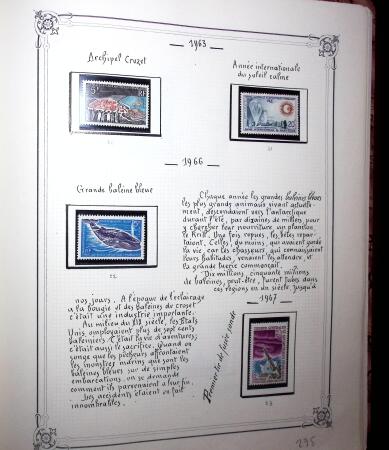 — 1963 —
Archipel Crozet
Année internationale
du soleil calme
20
21
— 1966 —
Grande baleine bleue
22
Chaque année les grandes baleines bleues
les plus grands animaux vivant actuelle-
ment, descendaient vers l'antarctique
durant l'été, par dizaines de milliers, pour
y chercher leur nourriture, un plancton,
le Krill. Une fois repues, les bêtes repar-
taient. Celles, du moins, qui avaient gardé
la vie, car les chasseurs, qui connaissaient
leurs habitudes, venaient les attendre, et
la grande tuerie commençait.
Dix millions, cinquante millions
de baleines, peut-être, furent tuées dans
ces régions en un siècle et demi
nos jours. A l'époque de l'éclairage
à la bougie et des baleines de corset
c'était une industrie importante.
Au milieu du XIX siècle, les États
Unis employaient plus de sept cents
baleiniers. C'était la vie d'aventures;
c'était aussi le sacrifice. Quand on
songe que les pêcheurs affrontaient
les monstres marins que sont les
baleines bleues sur de simples
embarcations, on se demande
comment ils parvenaient à leur fin.
Les accidents étaient en fait
innombrables.
— 1967 —
Premier tir de fusée sonde
23
295